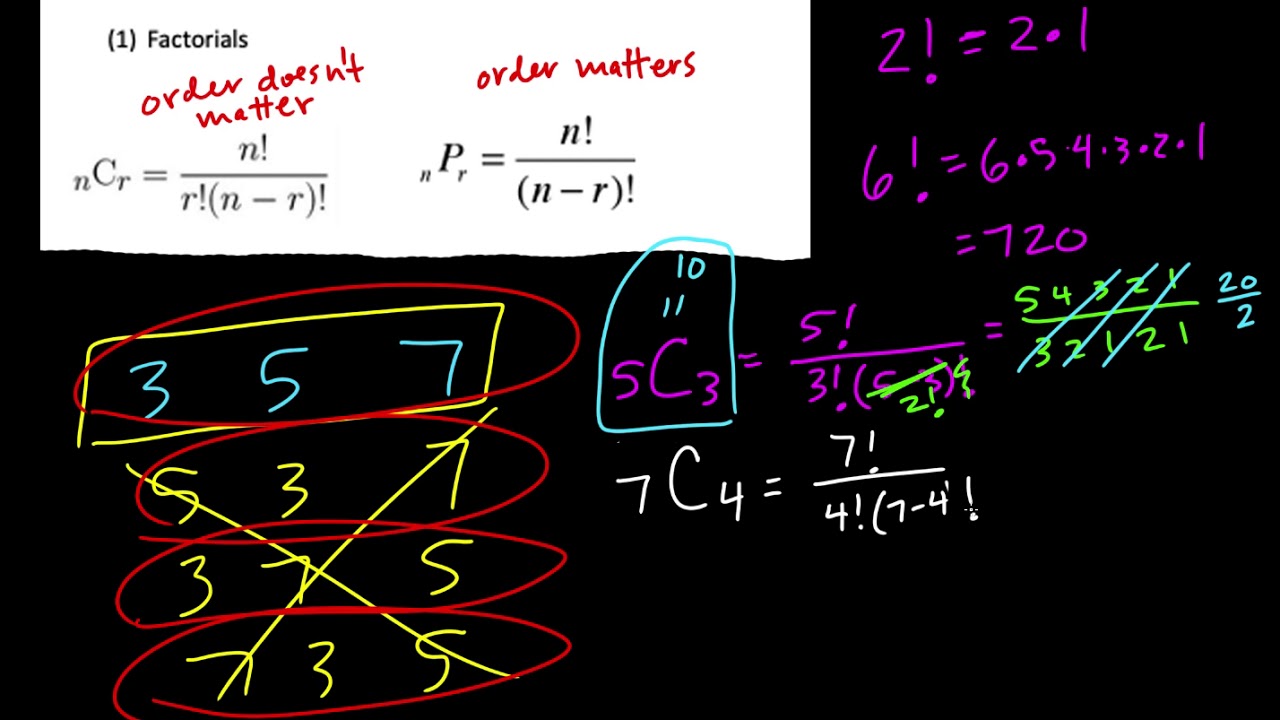 (1) Factorials
order doesn't
matter
nCr = n! / r!(n − r)!
order matters
nPr = n! / (n − r)!
2! = 2·1
6! = 6·5·4·3·2·1
= 720
3 5 7
5 3 7
3 7 5
7 3 5
10
=
5C3 = 5! / 3!(5-3)! = 5 4 3 2 1 / 3 2 1 2 1
2!
20 / 2
7C4 = 7! / 4!(7-4!